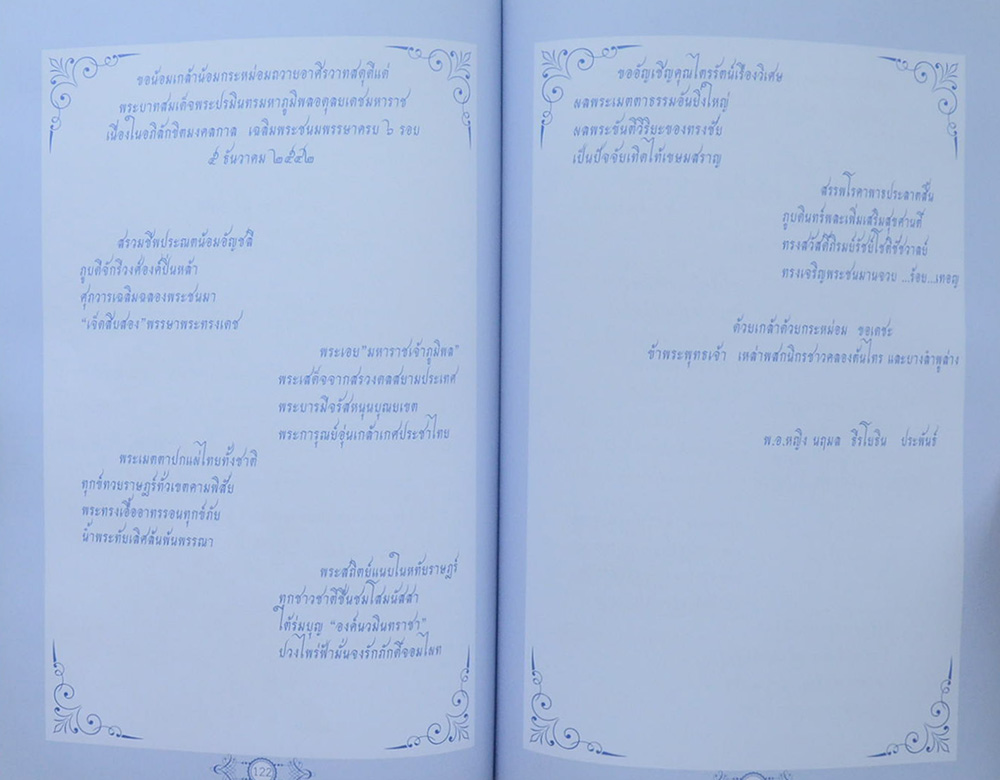 ขอน้อมเกล้าน้อมกระหม่อมถวายอาศิรวาทสดุดีแด่
พระบาทสมเด็จพระปรมินทรมหาภูมิพลอดุลยเดชมหาราช
เนื่องในอภิลักขิตมงคลกาล เฉลิมพระชนมพรรษาครบ ๖ รอบ
๕ ธันวาคม ๒๕๔๒
สรวมชีพประณตน้อมอัญชลี
ภูบดีจักรีวงศ์องค์ปิ่นหล้า
ศุภวารเฉลิมฉลองพระชนมา
“เจ็ดสิบสอง”พรรษาพระทรงเดช
พระเอย”มหาราชเจ้าภูมิพล”
พระเสด็จจากสรวงดลสยามประเทศ
พระบารมีจรัสหนุนบุณยเขต
พระการุณย์อุ่นเกล้าเกศประชาไทย
พระเมตตาปกแผ่ไทยทั้งชาติ
ทุกข์ทวยราษฎร์ทั่วเขตคามพิสัย
พระทรงเอื้ออาทรรอนทุกข์ภัย
น้ำพระทัยเลิศล้นพ้นพรรณา
พระสถิตย์แนบในหทัยราษฎร์
ทุกชาวชาติชื่นชมโสมนัสสา
ใต้ร่มบุญ “องค์นวมินทราชา”
ปวงไพร่ฟ้ามั่นจงรักภักดีจอมไผท
122
ขออัญเชิญคุณไตรรัตน์เรืองวิเศษ
ผลพระเมตตาธรรมอันยิ่งใหญ่
ผลพระขันติวิริยะของทรงชัย
เป็นปัจจัยเทิดไท้เขษมสราญ
สรรพโรคาพาธประลาตสิ้น
ภูบดินทร์พละเพิ่มเสริมสุขศานติ์
ทรงสวัสดิ์ภิรมย์รัชย์โชติชัชวาลย์
ทรงเจริญพระชนมานจวบ ...ร้อย...เทอญ
ด้วยเกล้าด้วยกระหม่อม ขอเดชะ
ข้าพระพุทธเจ้า เหล่าพสกนิกรชาวคลองต้นไทร และบางลำพูล่าง
พ.อ.หญิง นฤมล ธีรโยธิน ประพันธ์